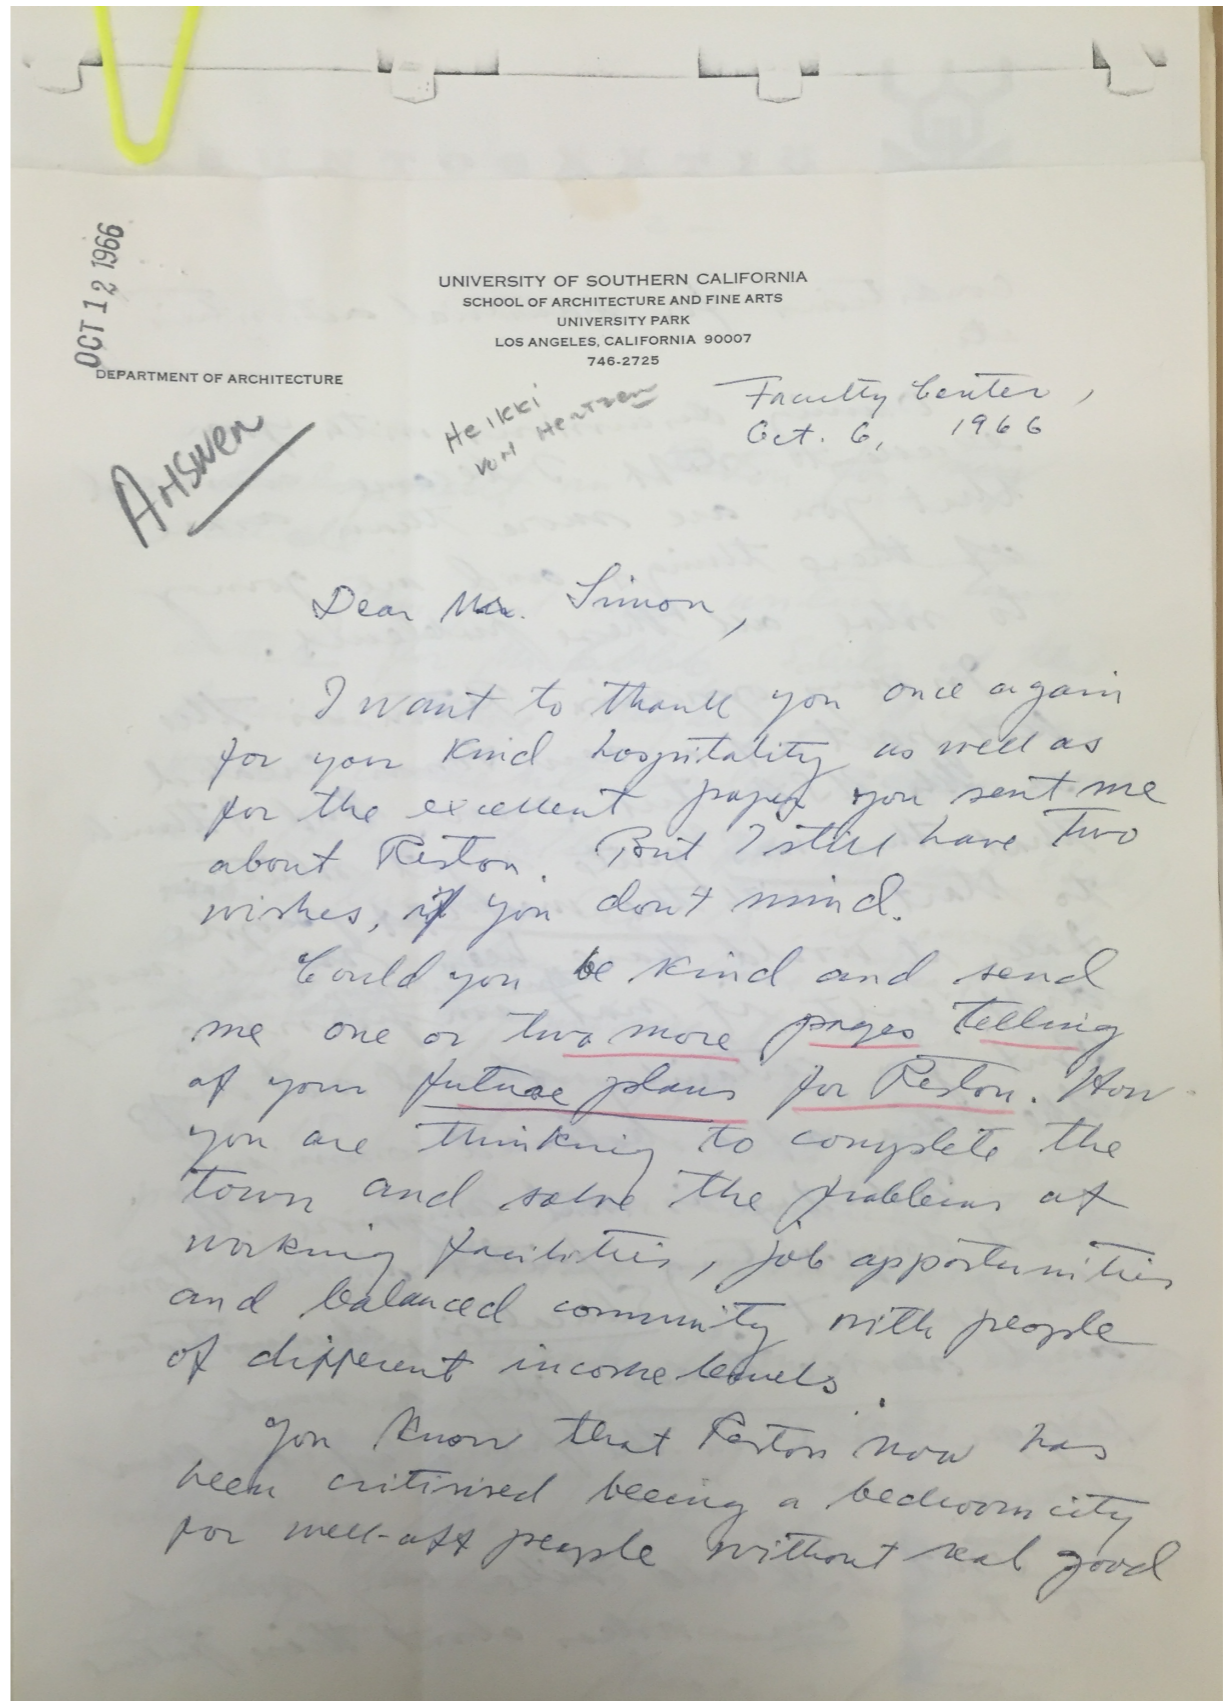 OCT 12 1966
UNIVERSITY OF SOUTHERN CALIFORNIA
SCHOOL OF ARCHITECTURE AND FINE ARTS
UNIVERSITY PARK
LOS ANGELES, CALIFORNIA 90007
746-2725
DEPARTMENT OF ARCHITECTURE
Answer
Heikki
von Hertzen
Faculty Center,
Oct. 6, 1966
Dear Mr. Simon,
I want to thank you once again
for your kind hospitality as well as
for the excellent paper you sent me
about Reston. But I still have two
wishes, if you don't mind.
Could you be kind and send
me one or two more pages telling
of your future plans for Reston. How
you are thinking to complete the
town and solve the problems of
working facilities, job opportunities
and balanced community with people
of different income levels.
You know that Reston now has
been critisised beeing a bedroom city
for well-off people without real good